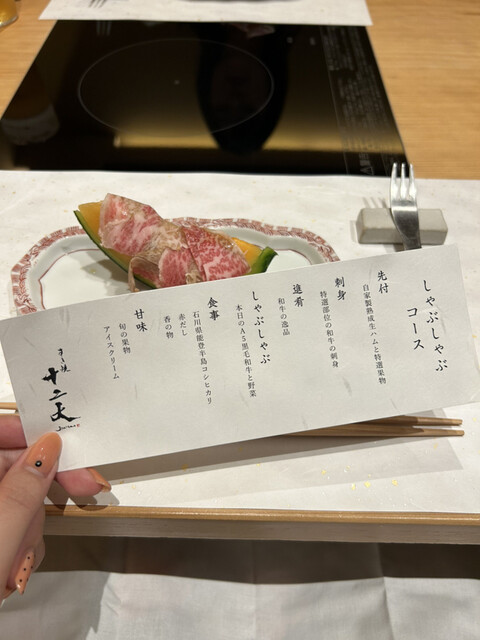 しゃぶしゃぶ
コース
先付
自家製熟成生ハムと特選果物
刺身
特選部位の和牛の刺身
進肴
和牛の逸品
しゃぶしゃぶ
本日のA5黒毛和牛と野菜
食事
石川県能登半島コシヒカリ
赤だし
香の物
甘味
旬の果物
アイスクリーム
すき焼
十二天